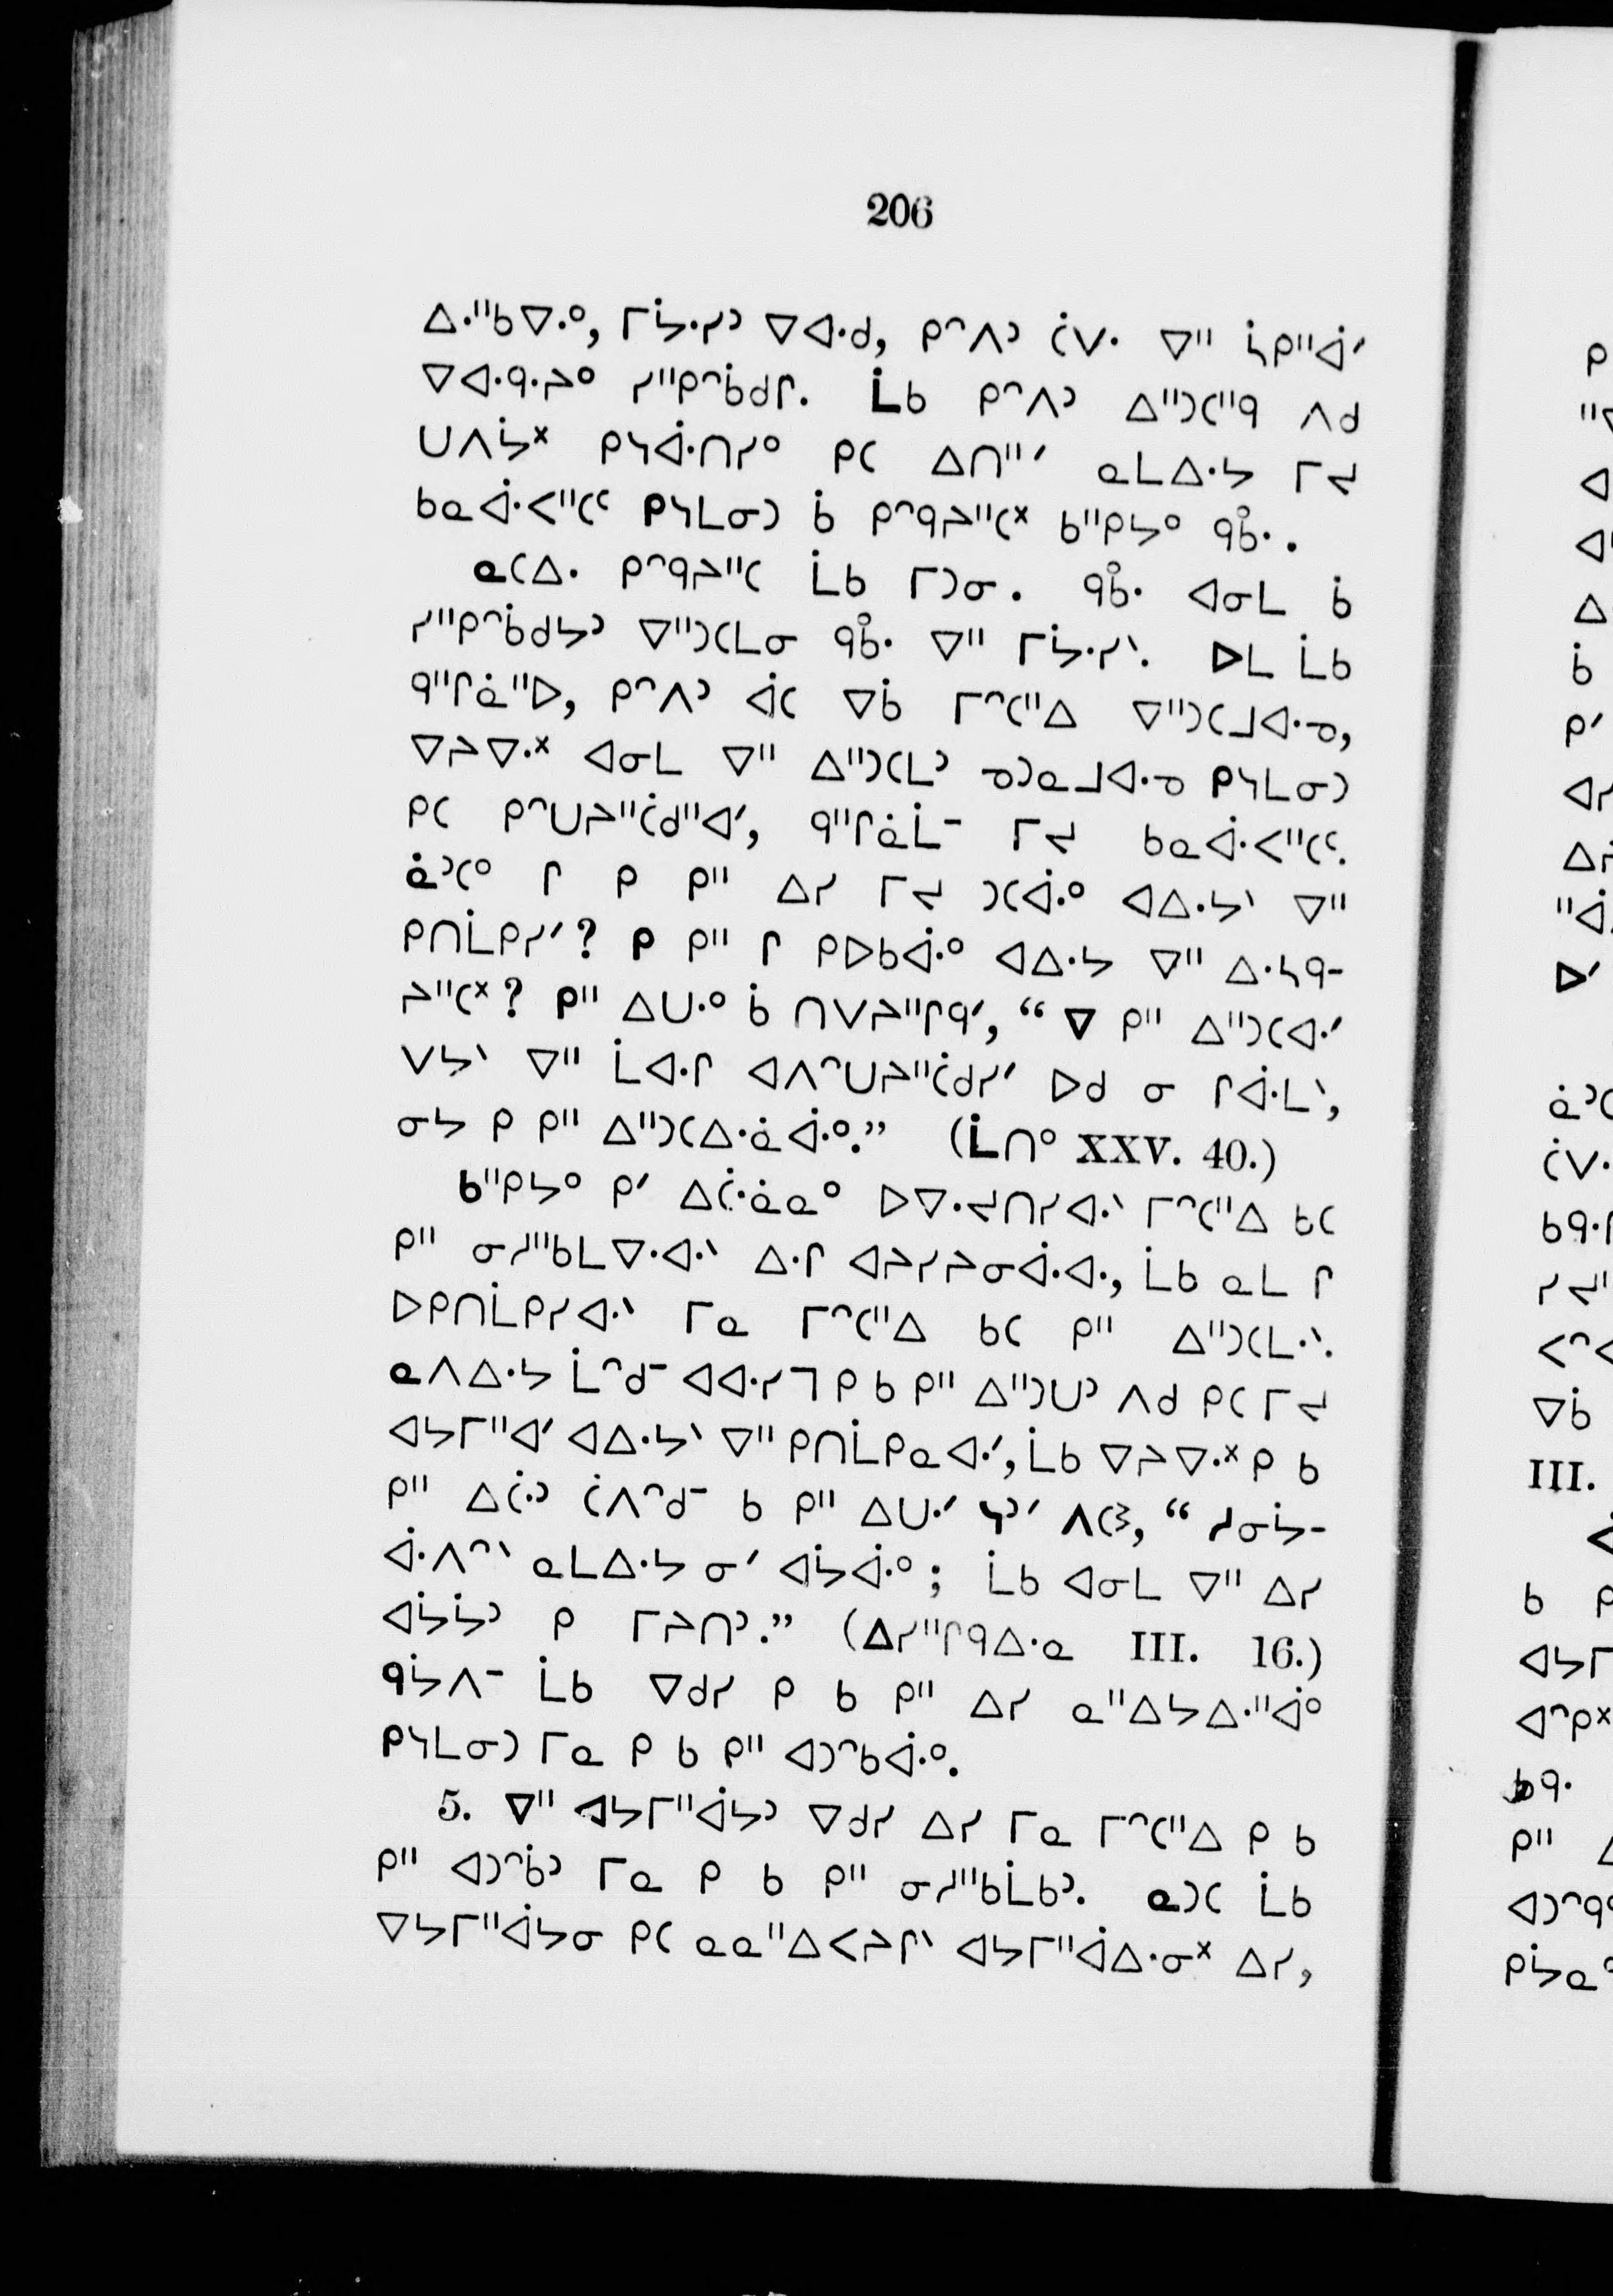 206
ᐃᐧᐦᑲᐁᐧᐤ, ᒥᔮᐧᓯᐣ ᐁᐊᐧᑯ, ᑭᐢᐱᐣ ᑖᐯᐧ ᐁᐦ ᓵᑭᐦᐋᐟ
ᐁᐊᐧᑫᐧᔨᐤ ᓯᐦᑭᐢᑳᑯᒋ. ᒫᑲ ᑭᐢᐱᐣ ᐃᐦᑐᑕᐦᑫ ᐱᑯ
ᑌᐱᔮᕽ ᑭᓴᐋᐧᑎᓯᐤ ᑭᑕ ᐃᑎᐦᐟ ᓇᒪᐃᐧᔭ ᒥᔪ
ᑲᓇᐋᐧᐸᐦᑕᒼ ᑭᓴᒪᓂᑐ ᑳ ᑭᐢᑫᔨᐦᑕᕽ ᑲᐦᑭᔭᐤ ᑫᑾᐢ.
ᓇᑕᐃᐧ ᑭᐢᑫᔨᐦᑕ ᒫᑲ ᒥᑐᓂ. ᑫᑾᐢ ᐊᓂᒪ ᑳ
ᓯᐦᑭᐢᑳᑯᔭᐣ ᐁᐦᑐᑕᒪᓂ ᑫᑾᐢ ᐁᐦ ᒥᔮᐧᓯᐠ. ᐅᒪ ᒫᑲ
ᑫᐦᒋᓈᐦᐅ, ᑭᐢᐱᐣ ᐋᑕ ᐁᑳ ᒥᐢᑕᐦᐃ ᐁᐦᑐᑕᒧᐊᐧᓄ,
ᐁᔨᐁᐧᕽ ᐊᓂᒪ ᐁᐦ ᐃᐦᑐᑕᒪᐣ ᓄᑐᓇᒧᐊᐧᓄ ᑭᓴᒪᓂᑐ
ᑭᑕ ᑭᐢᑌᔨᐦᑖᑯᐦᐊᐟ, ᑫᐦᒋᓈᒫᐨ ᒥᔪ ᑲᓇᐋᐧᐸᐦᑕᒼ.
ᓈᐣᑕᐤ ᒋ ᑭ ᑭᐦ ᐃᓯ ᒥᔪ ᑐᑕᐋᐧᐤ ᐊᐃᐧᔭᐠ ᐁᐦ
ᑭᑎᒫᑭᓯᐟ? ᑭ ᑭᐦ ᒋ ᑭᐅᑲᐋᐧᐤ ᐊᐃᐧᔭ ᐁᐦ ᐃᐧᓴᑫ-
ᔨᐦᑕᕽ? ᑭᐦ ᐃᑌᐧᐤ ᑳ ᑎᐯᔨᐦᒋᑫᐟ, “ ᐁ ᑭᐦ ᐃᐦᑐᑕᐊᐧᐟ
ᐯᔭᐠ ᐁᐦ ᒫᐊᐧᒋ ᐊᐱᐢᑌᔨᐦᑖᑯᓯᐟ ᐅᑯ ᓂ ᒋᐋᐧᒪᐠ,
ᓂᔭ ᑭ ᑭᐦ ᐃᐦᑐᑕᐃᐧᓈᐋᐧᐤ.” (ᒫᑎᐤ XXV. 40.)
ᑲᐦᑭᔭᐤ ᑭᐟ ᐃᑖᐧᓈᓇᐤ ᐅᐁᐧᔪᑎᓯᐊᐧᐠ ᒥᐢᑕᐦᐃ ᑲᑕ
ᑭᐦ ᓂᓱᐦᑲᒪᐁᐧᐊᐧᐠ ᐃᐧᒋ ᐊᔨᓯᔨᓂᐋᐧᐊᐧ, ᒫᑲ ᓇᒪ ᒋ
ᐅᑭᑎᒫᑭᓯᐊᐧᐠ ᒥᓇ ᒥᐢᑕᐦᐃ ᑲᑕ ᑭᐦ ᐃᐦᑐᑕᒪᐧᐠ.
ᓇᐱᐃᐧᔭ ᒫᐢᑯᐨ ᐊᐊᐧᓯᒣ ᑭ ᑲ ᑭᐦ ᐃᐦᑐᑌᐣ ᐱᑯ ᑭᑕ ᒥᔪ
ᐊᔭᒥᐦᐊᐟ ᐊᐃᐧᔭᐠ ᐁᐦ ᑭᑎᒫᑭᓇᐊᐧᐟ, ᒫᑲ ᐁᔨᐁᐧᕽ ᑭ ᑲ
ᑭᐦ ᐃᑖᐧᐣ ᑖᐱᐢᑯᐨ ᑲ ᑭᐦ ᐃᑌᐧᐟ ᓭᐣᐟ ᐱᑕᕒ, “ ᓱᓂᔮ-
ᐋᐧᐱᐢᐠ ᓇᒪᐃᐧᔭ ᓂᐟ ᐊᔮᐋᐧᐤ ; ᒫᑲ ᐊᓂᒪ ᐁᐦ ᐃᓯ
ᐊᔮᔮᐣ ᑭ ᒥᔨᑎᐣ.” (ᐃᓯᐦᒋᑫᐃᐧᓇ III. 16.)
ᑫᔮᐱᐨ ᒫᑲ ᐁᑯᓯ ᑭ ᑲ ᑭᐦ ᐃᓯ ᓇᐦᐃᔭᐃᐧᐦᐋᐤ
ᑭᓴᒪᓂᑐ ᒥᓇ ᑭ ᑲ ᑭᐦ ᐊᑐᐢᑲᐋᐧᐤ.
5. ᐁᐦ ᐊᔭᒥᐦᐋᔭᐣ ᐁᑯᓯ ᐃᓯ ᒥᓇ ᒥᐢᑕᐦᐃ ᑭ ᑲ
ᑭᐦ ᐊᑐᐢᑳᐣ ᒥᓇ ᑭ ᑲ ᑭᐦ ᓂᓱᐦᑲᒫᑲᐣ. ᓇᑐᑕ ᒫᑲ
ᐁᔭᒥᐦᐋᔭᓂ ᑭᑕ ᓇᓇᐦᐃᐸᔨᒋᐠ ᐊᔭᒥᐦᐋᐃᐧᓂᕽ ᐃᓯ,